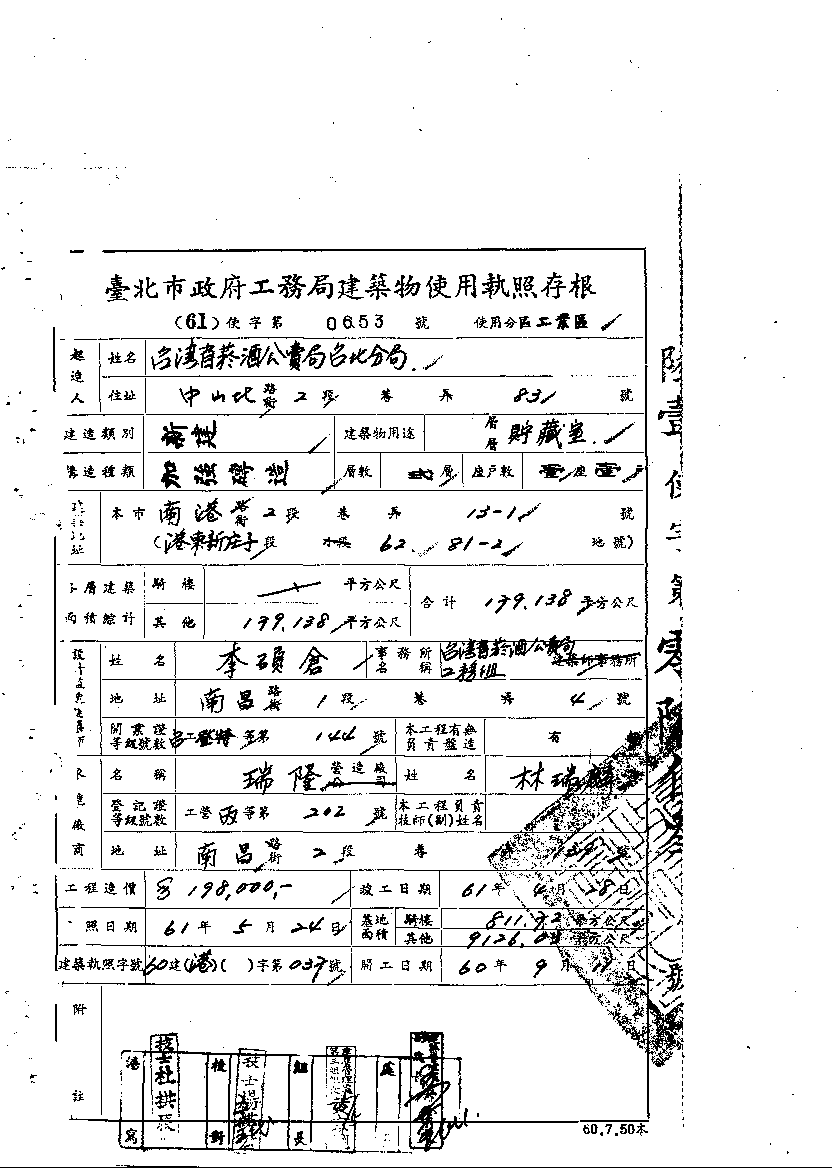 臺北市政府工務局建築物使用執照存根
(61)使字第 0653 號 使用分區工業區
起造人 姓名 台湾省菸酒公賣局台北分局
住址 中山北路街2段 巷 弄 83 號
建造類別 新建 建築物用途 層層 貯藏室
構造種類 加強磚造 層數 層 座戶數 壹座壹戶
本市 南港路街2段 巷 弄 13-1 號
(港東新庄子段 62 81-2 地號)
層建築面積總計 騎樓 平方公尺 合計 139.138 平方公尺
其他 139.138 平方公尺
姓名 李碩倉 事務所名稱 台湾省菸酒公賣局工務組 建築師事務所
地址 南昌路街1段 巷 弄 4 號
開業證等級號數 等第 144 號 本工程有無負責監造 有
名稱 瑞隆 營造廠公司 姓名 林瑞
登記證等級號數 工營丙等第 202 號 本工程負責技師(副)姓名
廠商 地址 南昌路街2段 巷 號
工程造價 198,000,- 竣工日期 61年4月28日
照日期 61年5月24日 基地面積 騎樓 811.92 平方公尺
其他 9126.08 平方公尺
建築執照字號 60建(港)( )字第039號 開工日期 60年9月11日
附註
繕寫 技士杜拱辰 校對 技士 組長
60.7.50本
陸壹使字第零陸伍 號